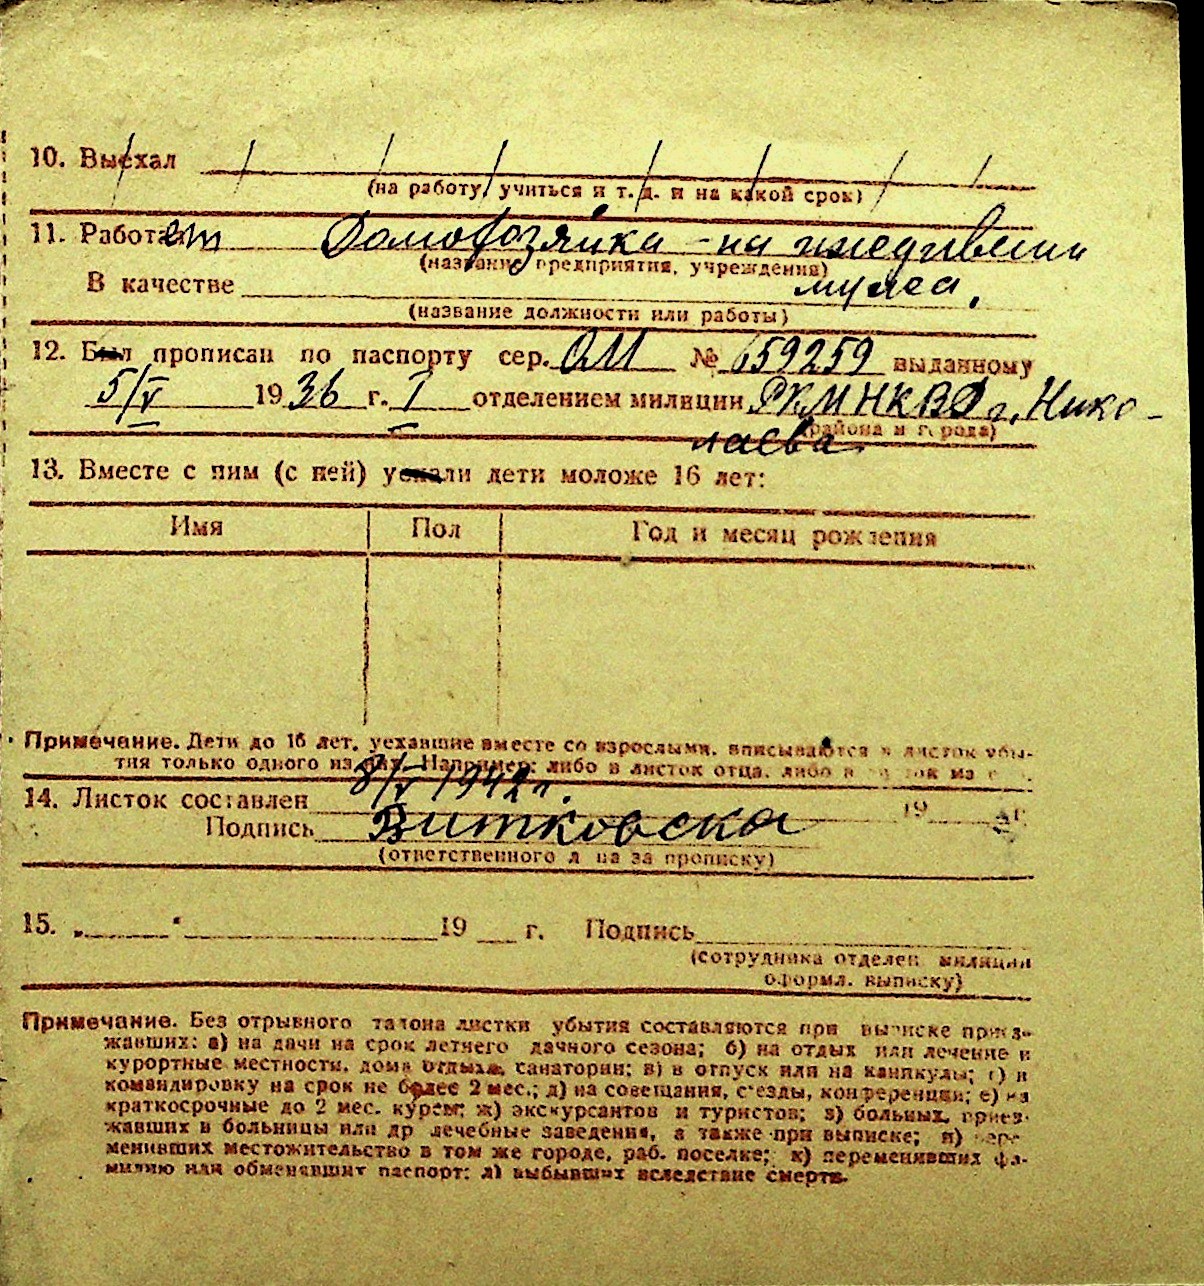 10. Выехал
(на работу, учиться и т. д. и на какой срок)
11. Работает Домохозяйка - на иждивении
(название предприятия, учреждения)
В качестве мужа.
(название должности или работы)
12. Был прописан по паспорту сер. ОМ № 659259 выданному
5/V 1936 г. I отделением милиции РКМ НКВД г. Нико-
(района и города)
лаева
13. Вместе с ним (с ней) уехали дети моложе 16 лет:
Имя Пол Год и месяц рождения
Примечание. Дети до 16 лет, уехавшие вместе со взрослыми, вписываются в листок убы-
тия только одного из них. Например: либо в листок отца, либо в листок ма
8/V 1942 г.
14. Листок составлен 19 г.
Подпись Витковска
(ответственного лица за прописку)
15. „ “ 19 г. Подпись
(сотрудника отделен. милиции
оформл. выписку)
Примечание. Без отрывного талона листки убытия составляются при выписке приез-
жавших: а) на дачи на срок летнего дачного сезона; б) на отдых или лечение в
курортные местности, дома отдыха, санатории; в) в отпуск или на каникулы; г) в
командировку на срок не более 2 мес.; д) на совещания, с'езды, конференции; е) на
краткосрочные до 2 мес. курсы; ж) экскурсантов и туристов; з) больных, приез-
жавших в больницы или др лечебные заведения, а также при выписке; и) пере-
менивших местожительство в том же городе, раб. поселке; к) переменивших фа-
милию или обменявших паспорт; л) выбывших вследствие смерти.